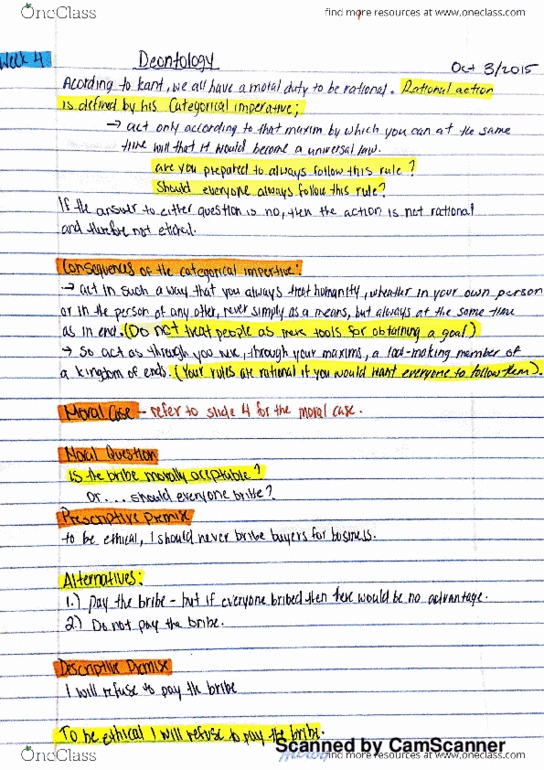 OneClass
find more resources at www.oneclass.com
Week 4
Deontology
Oct 3/2015
Acording to kant, we all have a moral duty to be rational. Rational action
is defined by his Categorical imperative;
→ act only according to that maxim by which you can at the same
time will that it would become a universal law.
are you prepared to always follow this rule?
Should everyone always follow this rule?
If the answer to either question is no, then the action is not rational
and therfore not ethical.
Consequences of the categorical impertive:
→ act in such a way that you always treat humanity, whether in your own person
or in the person of any other, never simply as a means, but always at the same time
as in end. (Do not treat people as mere tools for obtaining a goal)
→ So act as through you were, through your maxims, a law-making member of
a kingdom of ends. (Your rules are rational if you would want everyone to follow them).
Moral Case - refer to slide 4 for the moral case.
Moral Question
is the bribe morally acceptable?
or... should everyone bribe?
Prescriptive Premise
to be ethical, I should never bribe buyers for business.
Alternatives:
1.) pay the bribe - but if everyone bribed then there would be no advantage.
2.) Do not pay the bribe.
Descriptive Premise
I will refuse to pay the bribe
To be ethical I will refuse to pay the bribe.
Scanned by CamScanner
OneClass
find more resources at www.oneclass.com